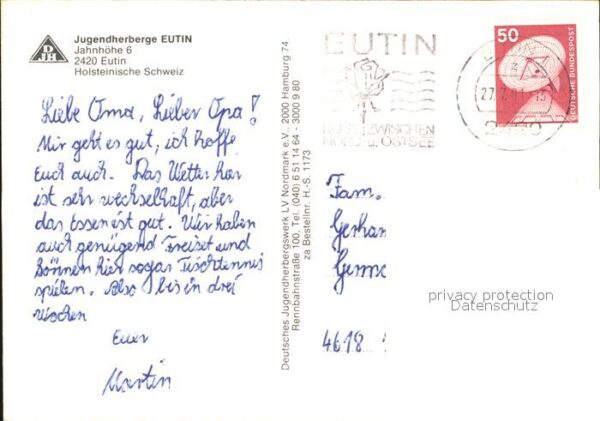 Jugendherberge EUTIN
Jahnhöhe 6
2420 Eutin
Holsteinische Schweiz
DJH
Liebe Oma, Lieber Opa!
Mir geht es gut, ich hoffe
Euch auch. Das Wetter hier
ist sehr wechselhaft, aber
das Essen ist gut. Wir haben
auch genügend Freizeit und
können hier sogar Tischtennis
spielen. Also bis in drei
Wochen
Euer
Martin
Deutsches Jugendherbergswerk LV Nordmark e.V., 2000 Hamburg 74,
Rennbahnstraße 100, Tel. (040) 6 51 14 64 - 3000 9 80
za Bestellnr. H.-S. 1173
EUTIN
ROSE ZWISCHEN
NORD- U. OSTSEE
50
DEUTSCHE BUNDESPOST
Fam.
Gerhar
4618
privacy protection
Datenschutz